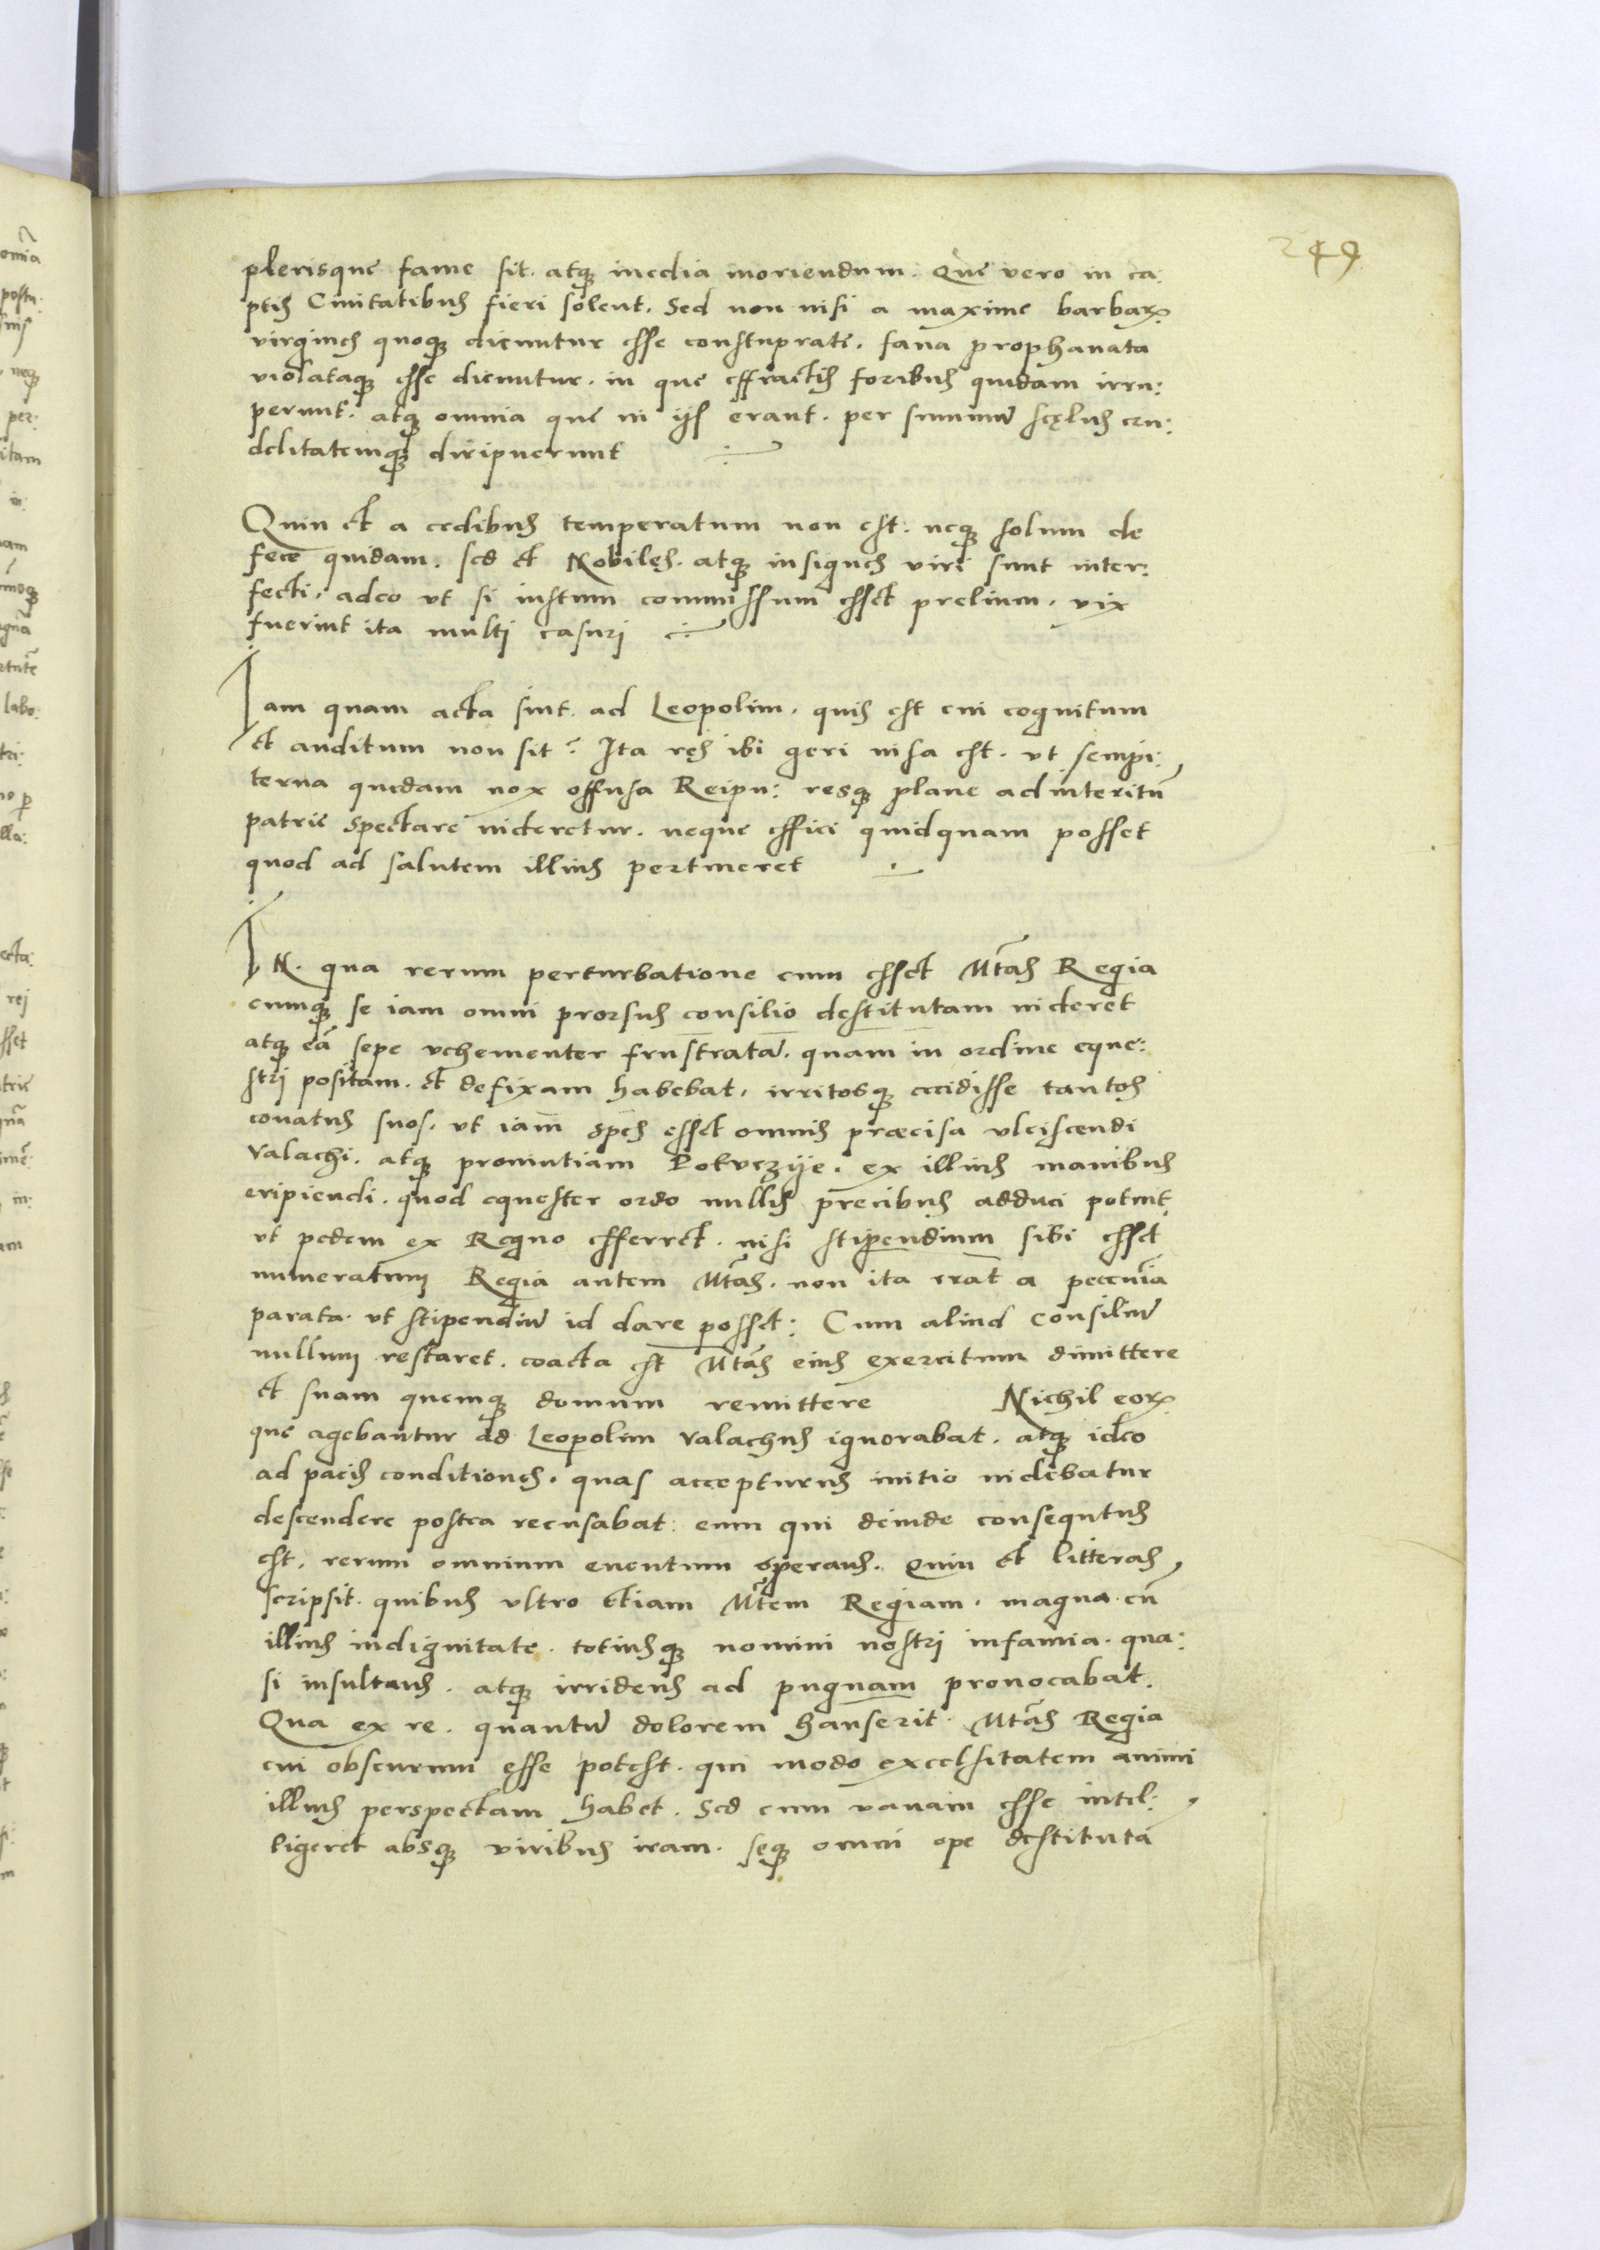 249
plerisque fame sit. atq3 inedia moriendum. Que vero in ca:
ptis Ciuitatibus fieri solent. Sed non nisi a maxime barbarꝝ
virgines quoq3 dicuntur esse constuprate. fana prophanata
violataq3 esse dicuntur. in que effractis foribus quidam irru:
perunt. atq3 omnia que in ijs erant. per summũ scęlus cru:
delitatemq3 diripuerunt
Quin et a cedibus temperatum non est. neq3 solum de
fece quidam. sed et Nobiles. atq3 insignes viri sunt inter:
fecti, adeo vt si iustum commissum esset prelium. vix
fuerint ita multi casuri
Iam quam acta sint ad Leopolim. quis est cui cognitum
et auditum non sit? Ita res ibi geri uisa est. vt sempi:
terna quedam nox offusa Reipu: resq3 plane ad interitũ
patrie spectare uideretur. neque effici quidquam posset
quod ad salutem illius pertineret
IN. qua rerum perturbatione cum esset Mtas Regia
cumq3 se iam omni prorsus consilio destitutam uideret
atq3 eã sepe vehementer frustratã. quam in ordine eque:
stri positam. et defixam habebat, irritosq3 cecidisse tantos
conatus suos. vt iam spes esset omnis præcisa vlciscendi
Valachi. atq3 prouintiam Pokuczije. ex illius manibus
eripiendi. quod equester ordo nullis precibus adduci potuit
vt pedem ex Regno efferret. nisi stipendium sibi esset
numeratum Regia autem Mtas. non ita erat a pecunia
parata. vt stipendiũ id dare posset: Cum aliud consiliũ
nullum restaret. coacta est Mtas eius exercitum dimittere
et suam quemq3 domum remittere Nichil eorꝝ
que agebantur ad Leopolim Valachus ignorabat. atq3 ideo
ad pacis conditiones. quas accepturus initio uidebatur
descendere postea recusabat: eum qui deinde consequtus
est. rerum omnium euentum sperans. Quin et litteras,
scripsit. quibus vltro etiam Mtem Regiam. magna cũ
illius indignitate. totiusq3 nomini nostri infamia. qua:
si insultans. atq3 irridens ad pugnam prouocabat.
Qua ex re. quantũ dolorem hauserit. Mtas Regia
cui obscurum esse potest. qui modo excelsitatem animi
illius perspectam habet. Sed cum vanam esse intel:
ligeret absq3 viribus iram. seq3 omni ope destitutã